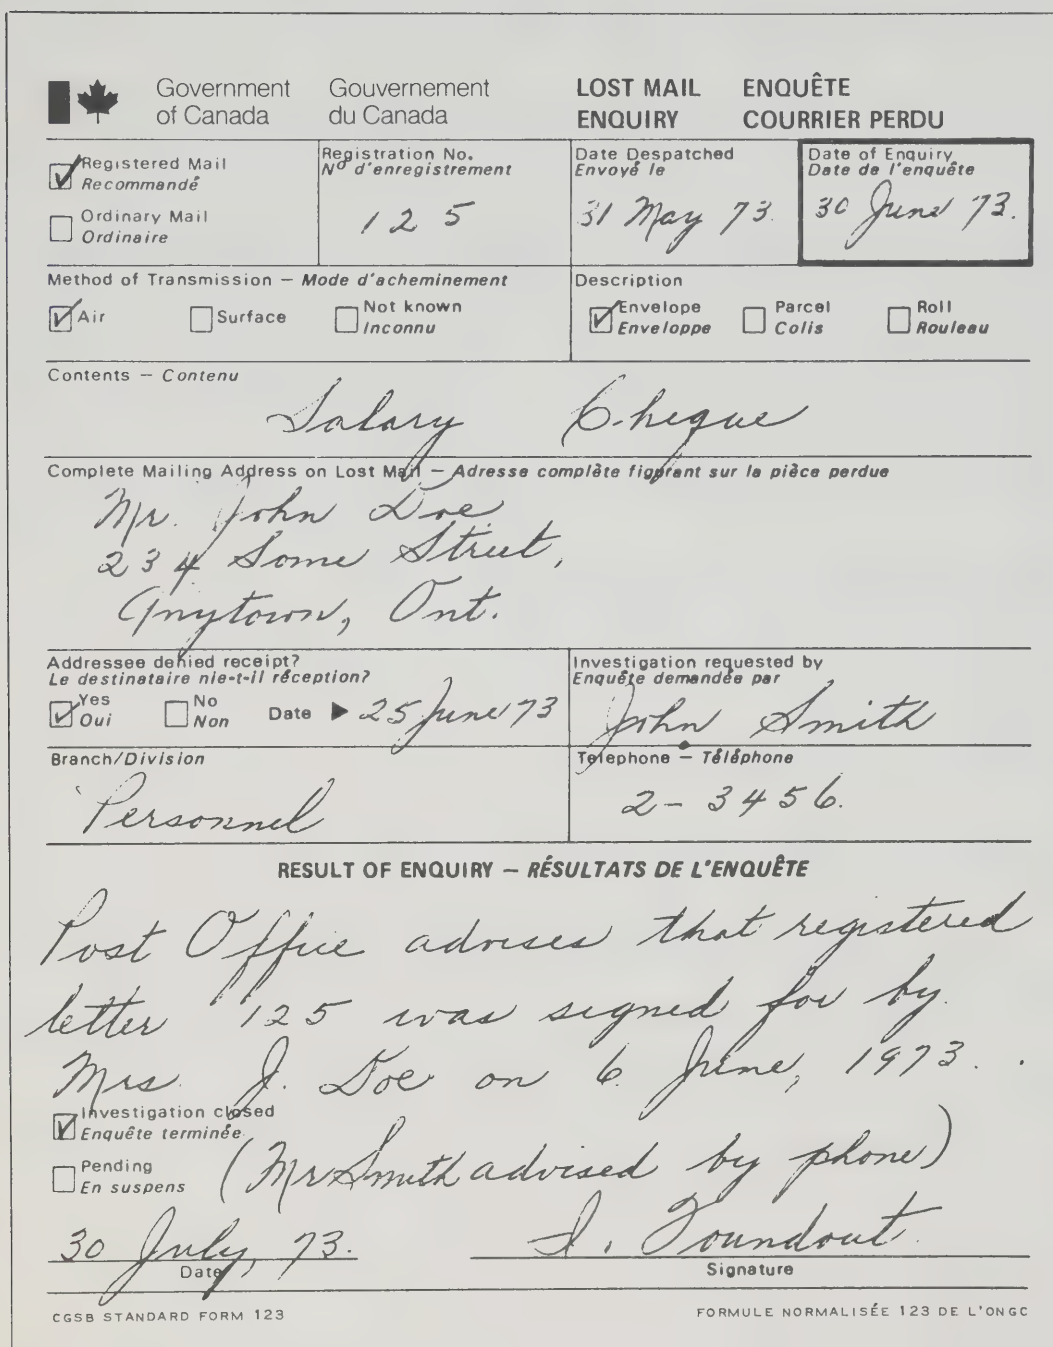 Government of Canada Gouvernement du Canada LOST MAIL ENQUIRY ENQUÊTE COURRIER PERDU
Registered Mail
Recommandé
Ordinary Mail
Ordinaire
Registration No.
Nº d'enregistrement
125
Date Despatched
Envoyé le
31 May 73.
Date of Enquiry
Date de l'enquête
30 June 73.
Method of Transmission – Mode d'acheminement
Air Surface Not known
Inconnu
Description
Envelope Parcel Roll
Enveloppe Colis Rouleau
Contents – Contenu
Salary Cheque
Complete Mailing Address on Lost Mail – Adresse complète figurant sur la pièce perdue
Mr. John Doe
234 Some Street,
Anytown, Ont.
Addressee denied receipt?
Le destinataire nie-t-il réception?
Yes No
Oui Non Date ▶ 25 June 73
Investigation requested by
Enquête demandée par
John Smith
Branch/Division
Personnel
Telephone – Téléphone
2-3456.
RESULT OF ENQUIRY – RÉSULTATS DE L'ENQUÊTE
Post Office advises that registered
letter 125 was signed for by
Mrs. J. Doe on 6 June, 1973.
Investigation closed
Enquête terminée
Pending
En suspens
(Mr Smith advised by phone)
30 July, 73.
Date
I. Foundout.
Signature
CGSB STANDARD FORM 123 FORMULE NORMALISÉE 123 DE L'ONGC